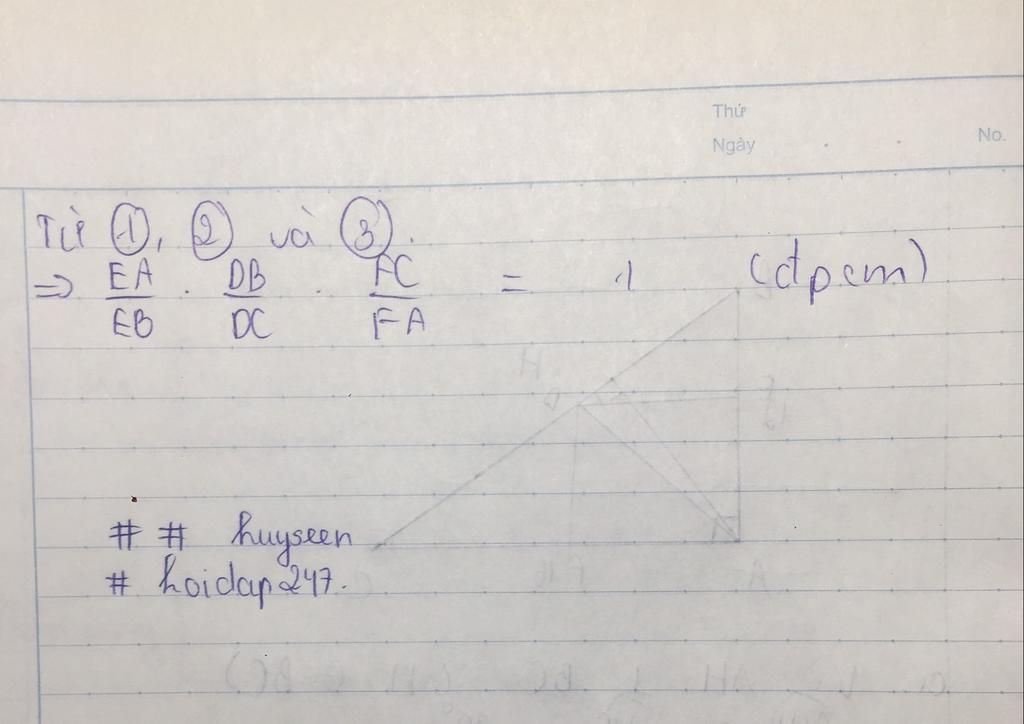 Thứ
Ngày
No.
Từ ①, ② và ③.
⇒ EA/EB . DB/DC . FC/FA = 1 (đpcm)
# # huyseen
# hoidap247.